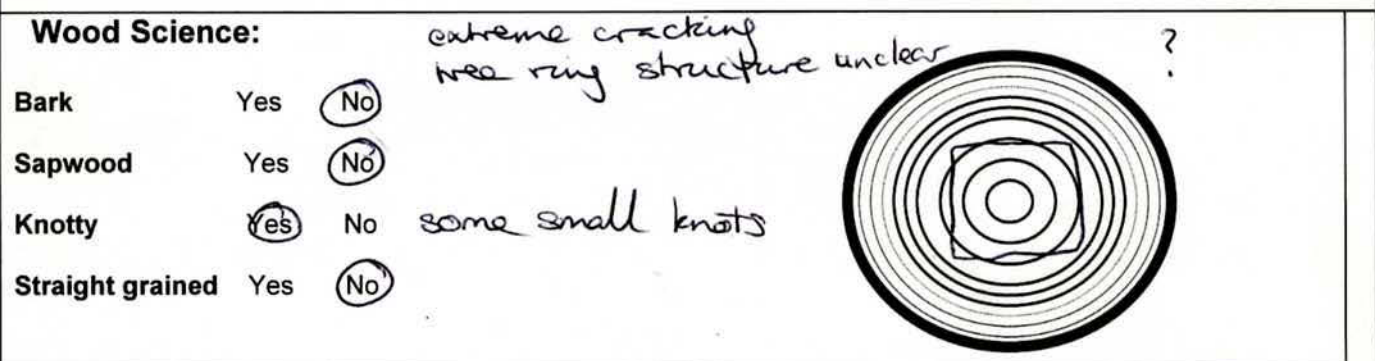 Wood Science:
extreme cracking
tree ring structure unclear
?
Bark Yes No
Sapwood Yes No
Knotty Yes No some small knots
Straight grained Yes No